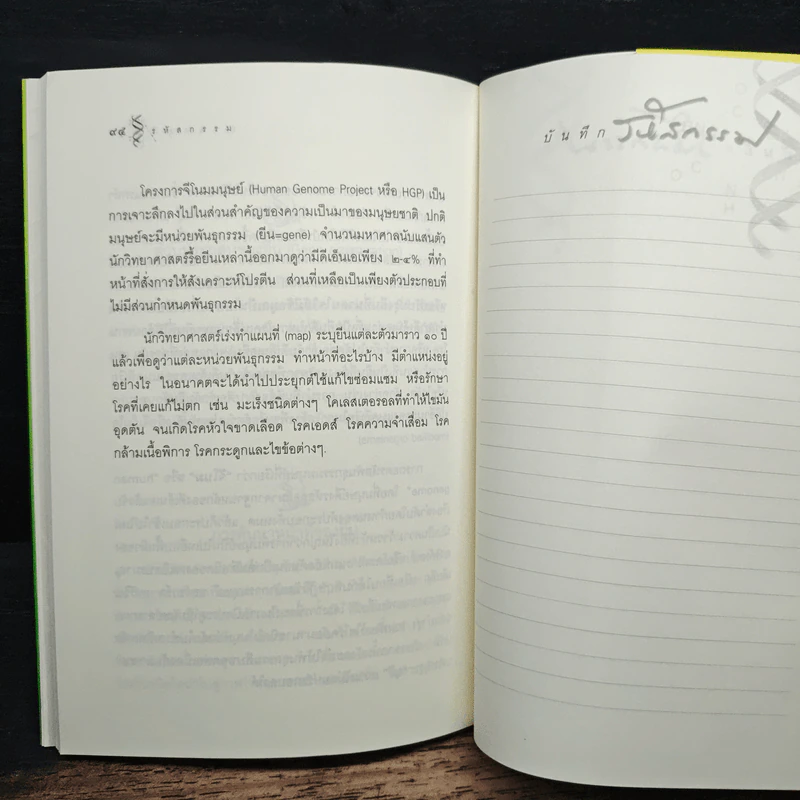 ๙๔ รหัสกรรม
โครงการจีโนมมนุษย์ (Human Genome Project หรือ HGP) เป็น
การเจาะลึกลงไปในส่วนสำคัญของความเป็นมาของมนุษยชาติ ปกติ
มนุษย์จะมีหน่วยพันธุกรรม (ยีน=gene) จำนวนมหาศาลนับแสนตัว
นักวิทยาศาสตร์รื้อยีนเหล่านี้ออกมาดูว่ามีดีเอ็นเอเพียง ๒-๔% ที่ทำ
หน้าที่สั่งการให้สังเคราะห์โปรตีน ส่วนที่เหลือเป็นเพียงตัวประกอบที่
ไม่มีส่วนกำหนดพันธุกรรม
นักวิทยาศาสตร์เร่งทำแผนที่ (map) ระบุยีนแต่ละตัวมาราว ๑๐ ปี
แล้วเพื่อดูว่าแต่ละหน่วยพันธุกรรม ทำหน้าที่อะไรบ้าง มีตำแหน่งอยู่
อย่างไร ในอนาคตจะได้นำไปประยุกต์ใช้แก้ไขซ่อมแซม หรือรักษา
โรคที่เคยแก้ไม่ตก เช่น มะเร็งชนิดต่างๆ โคเลสเตอรอลที่ทำให้ไขมัน
อุดตัน จนเกิดโรคหัวใจขาดเลือด โรคเอดส์ โรคความจำเสื่อม โรค
กล้ามเนื้อพิการ โรคกระดูกและไขข้อต่างๆ.
บันทึก รหัสกรรม